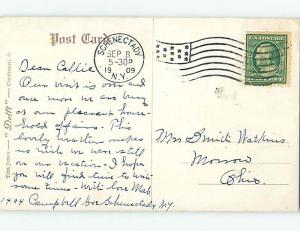 Post Card
SCHENECTADY
SEP 8
5-30P
1909
N.Y.
Dear Callie
Our visit is over and
once more we are busy
at our pleasant house-
hold affairs. This
lovely weather makes
us wish we were still
on our vacation. I hope
you will find time to write
some time. With love Mab.
1404 Campbell Ave Schenectady N.Y.
Mrs Smith Watkins
Morrow
Ohio.
Cincinnati, O.